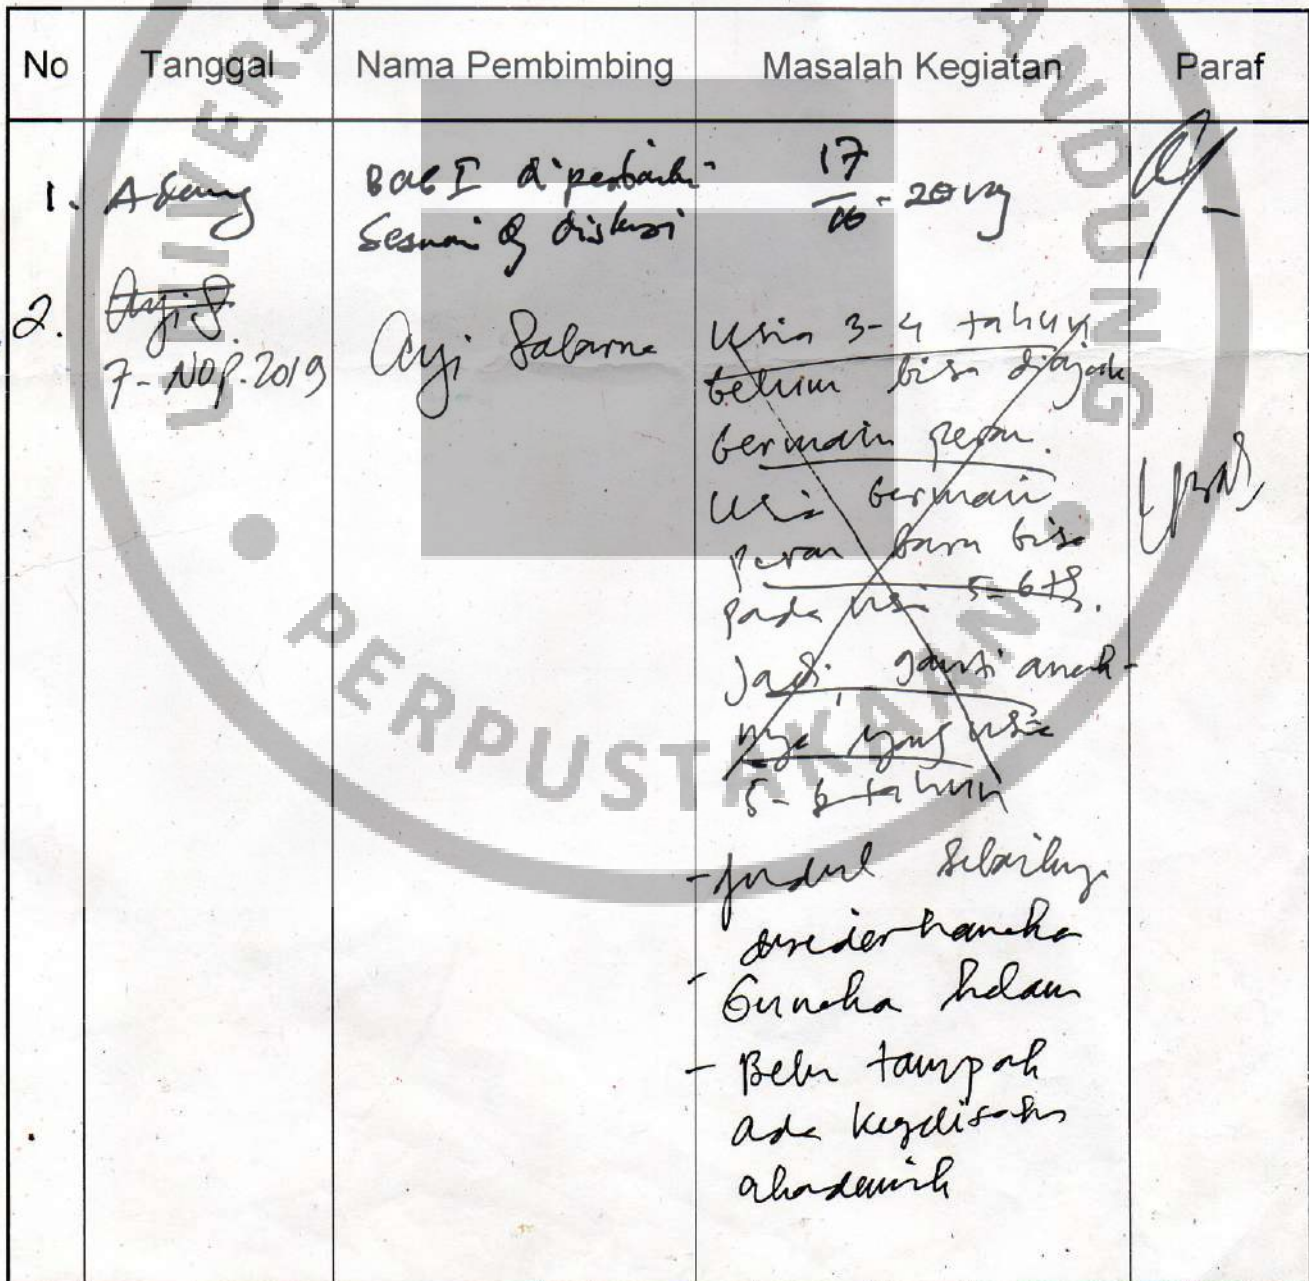 No Tanggal Nama Pembimbing Masalah Kegiatan Paraf
1. Bab I diperbaiki 17
Sesuai dg diskusi
2. Ayi S. Ayi Sabarna Usia 3-4 tahun
7-NOP.2019 belum bisa diajak
bermain peran.
Usia bermain
peran baru bisa
pada usia 5-6 th.
Jadi, ganti anak-
nya yang usia
5-6 tahun
- Judul sebaiknya
disederhanaka
- Gunaka
- Belu tampak
ada kegelisahan
akademik
UNIVERS
ANDUNG
PERPUSTAKAAN